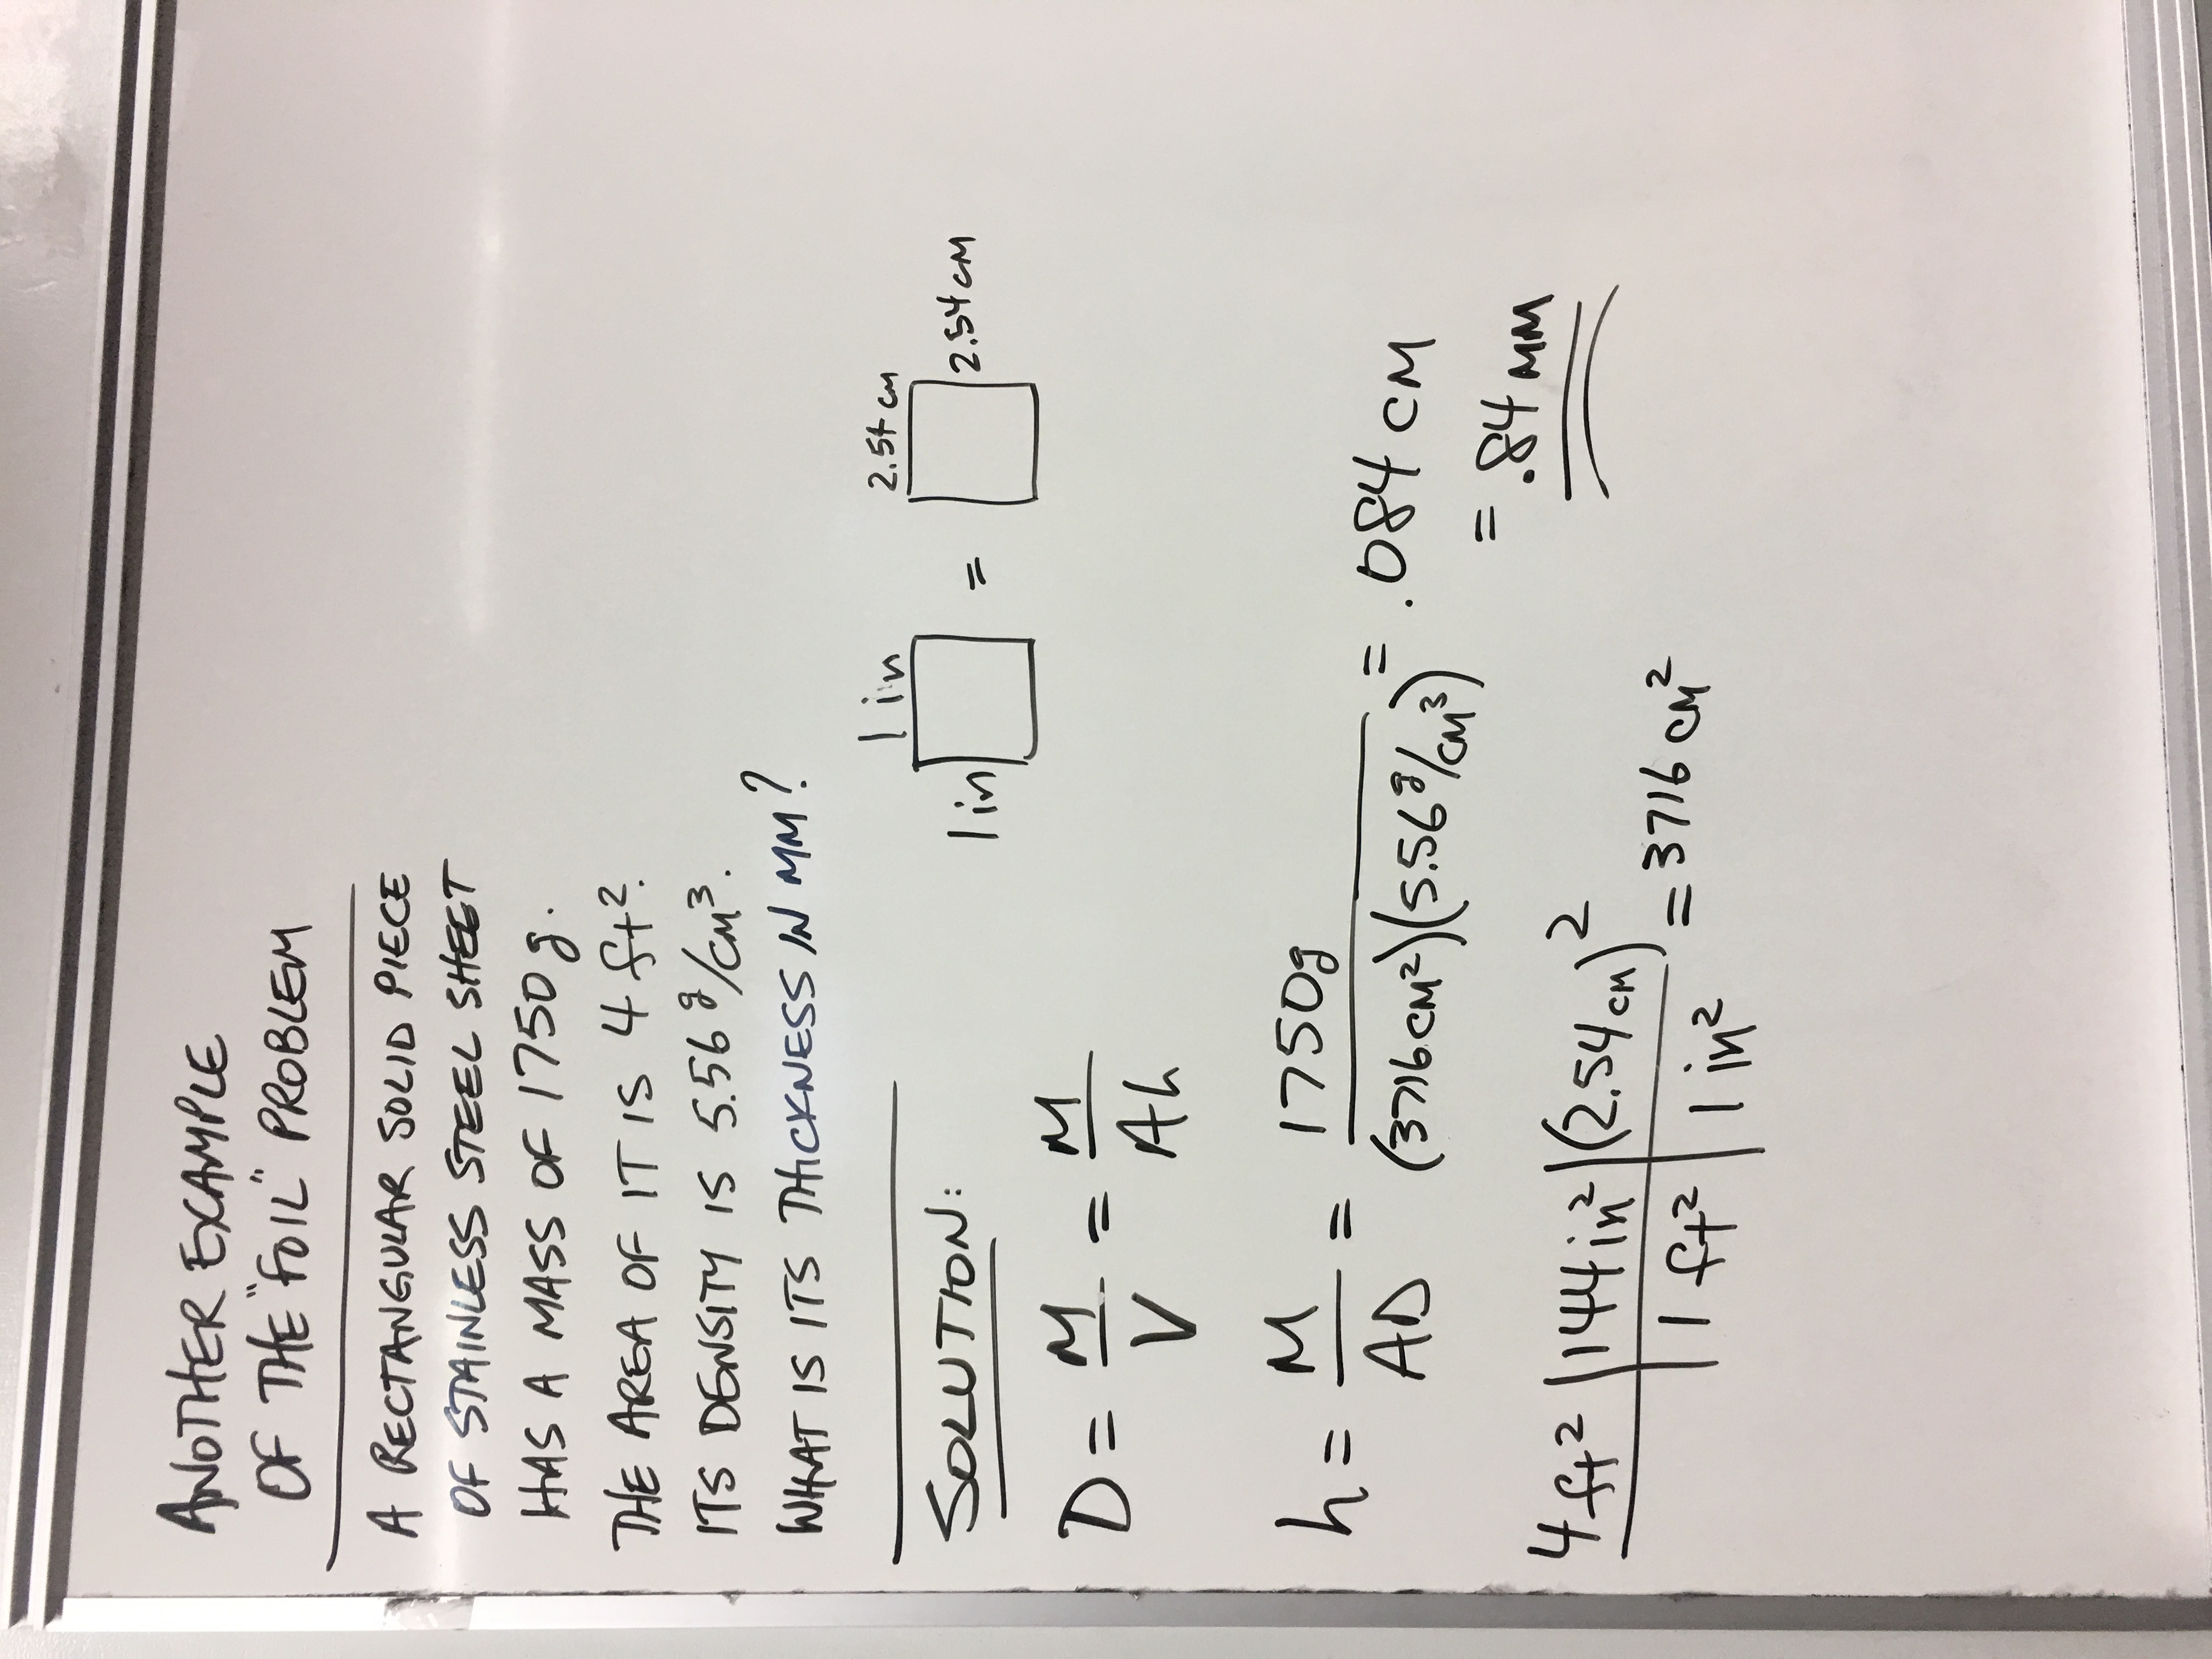 ANOTHER EXAMPLE
OF THE "FOIL" PROBLEM
A RECTANGULAR SOLID PIECE
OF STAINLESS STEEL SHEET
HAS A MASS OF 1750 g.
THE AREA OF IT IS 4 ft².
ITS DENSITY IS 5.56 g/cm³.
WHAT IS ITS THICKNESS IN MM?
SOLUTION:
1 in
1 in
=
2.54 cm
2.54 cm
D = M/V = M/Ah
h = M/AD = 1750g/(3716 cm²)(5.56 g/cm³) = .084 CM
= .84 MM
4 ft² | 144 in² | (2.54 cm)²
| 1 ft² | 1 in² = 3716 cm²